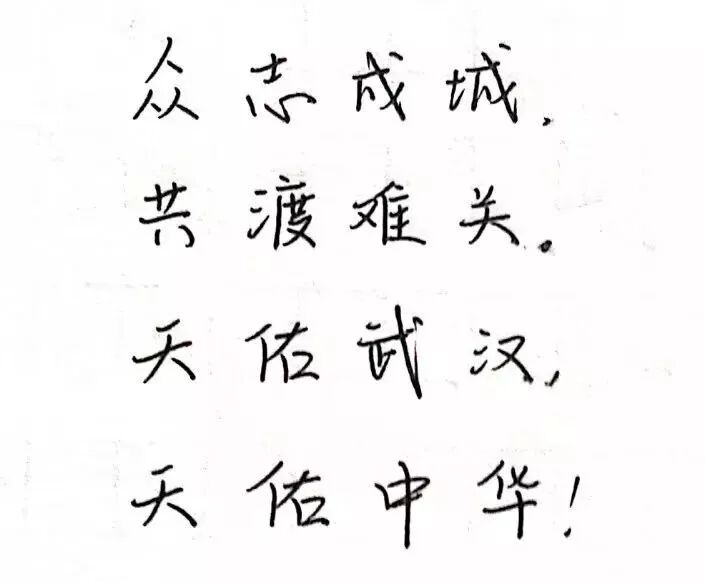 众志成城,
共渡难关。
天佑武汉,
天佑中华!